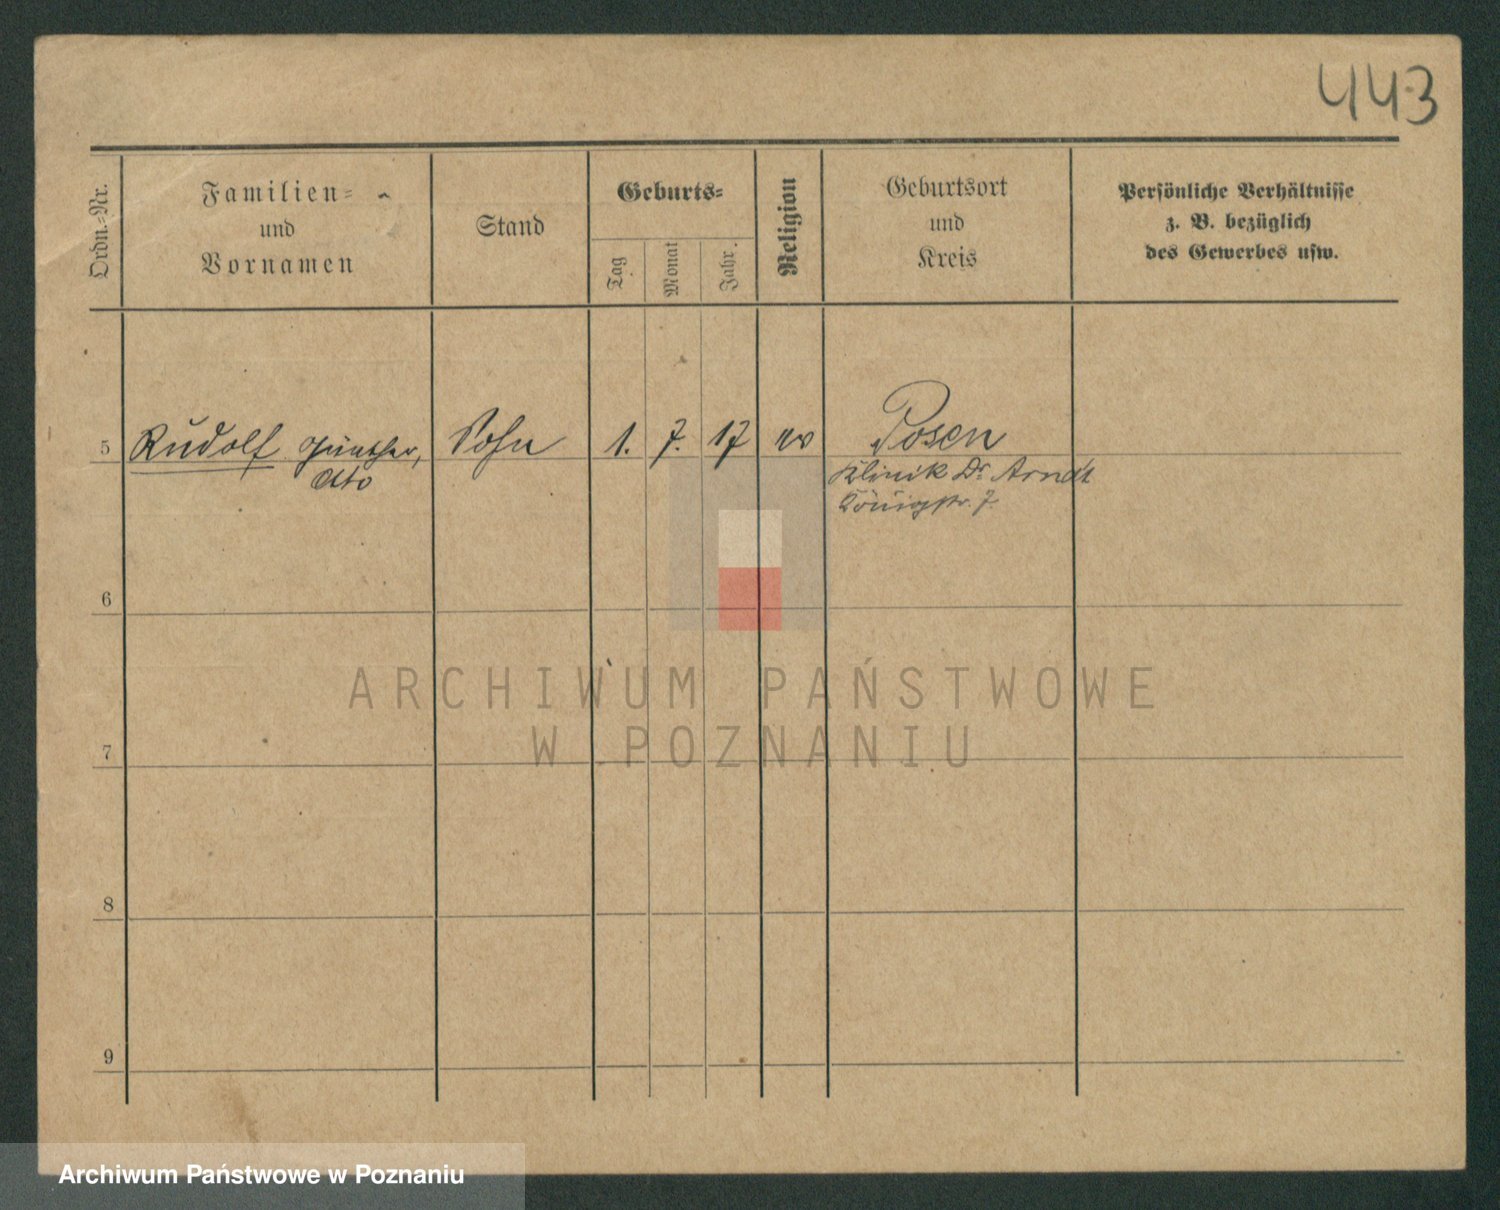 443
Ordn.=Nr.
Familien=
und
Vornamen
Stand
Geburts=
Tag
Monat
Jahr.
Religion
Geburtsort
und
Kreis
Persönliche Verhältnisse
z. B. bezüglich
des Gewerbes usw.
5 Rudolf Günther, Sohn 1. 7. 17 ev Posen
Otto
Klinik Dr Arndt
Königstr. 7
6
7
8
9
ARCHIWUM PAŃSTWOWE
W POZNANIU
Archiwum Państwowe w Poznaniu